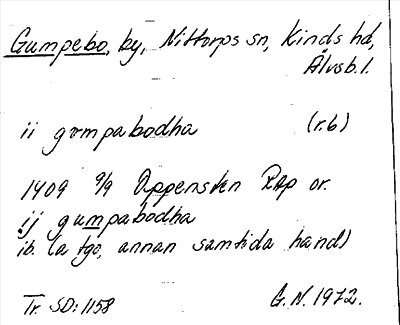 Gumpebo, by, Nittorps sn, Kinds hd,
Älvsb. l.
ii gvmpabodha (r. 6)
1409 9/9 Oppensten RAp or.
ij gumpabodha
ib. (a tgo, annan samtida hand)
Tr. SD: 1158 G. N. 1972.